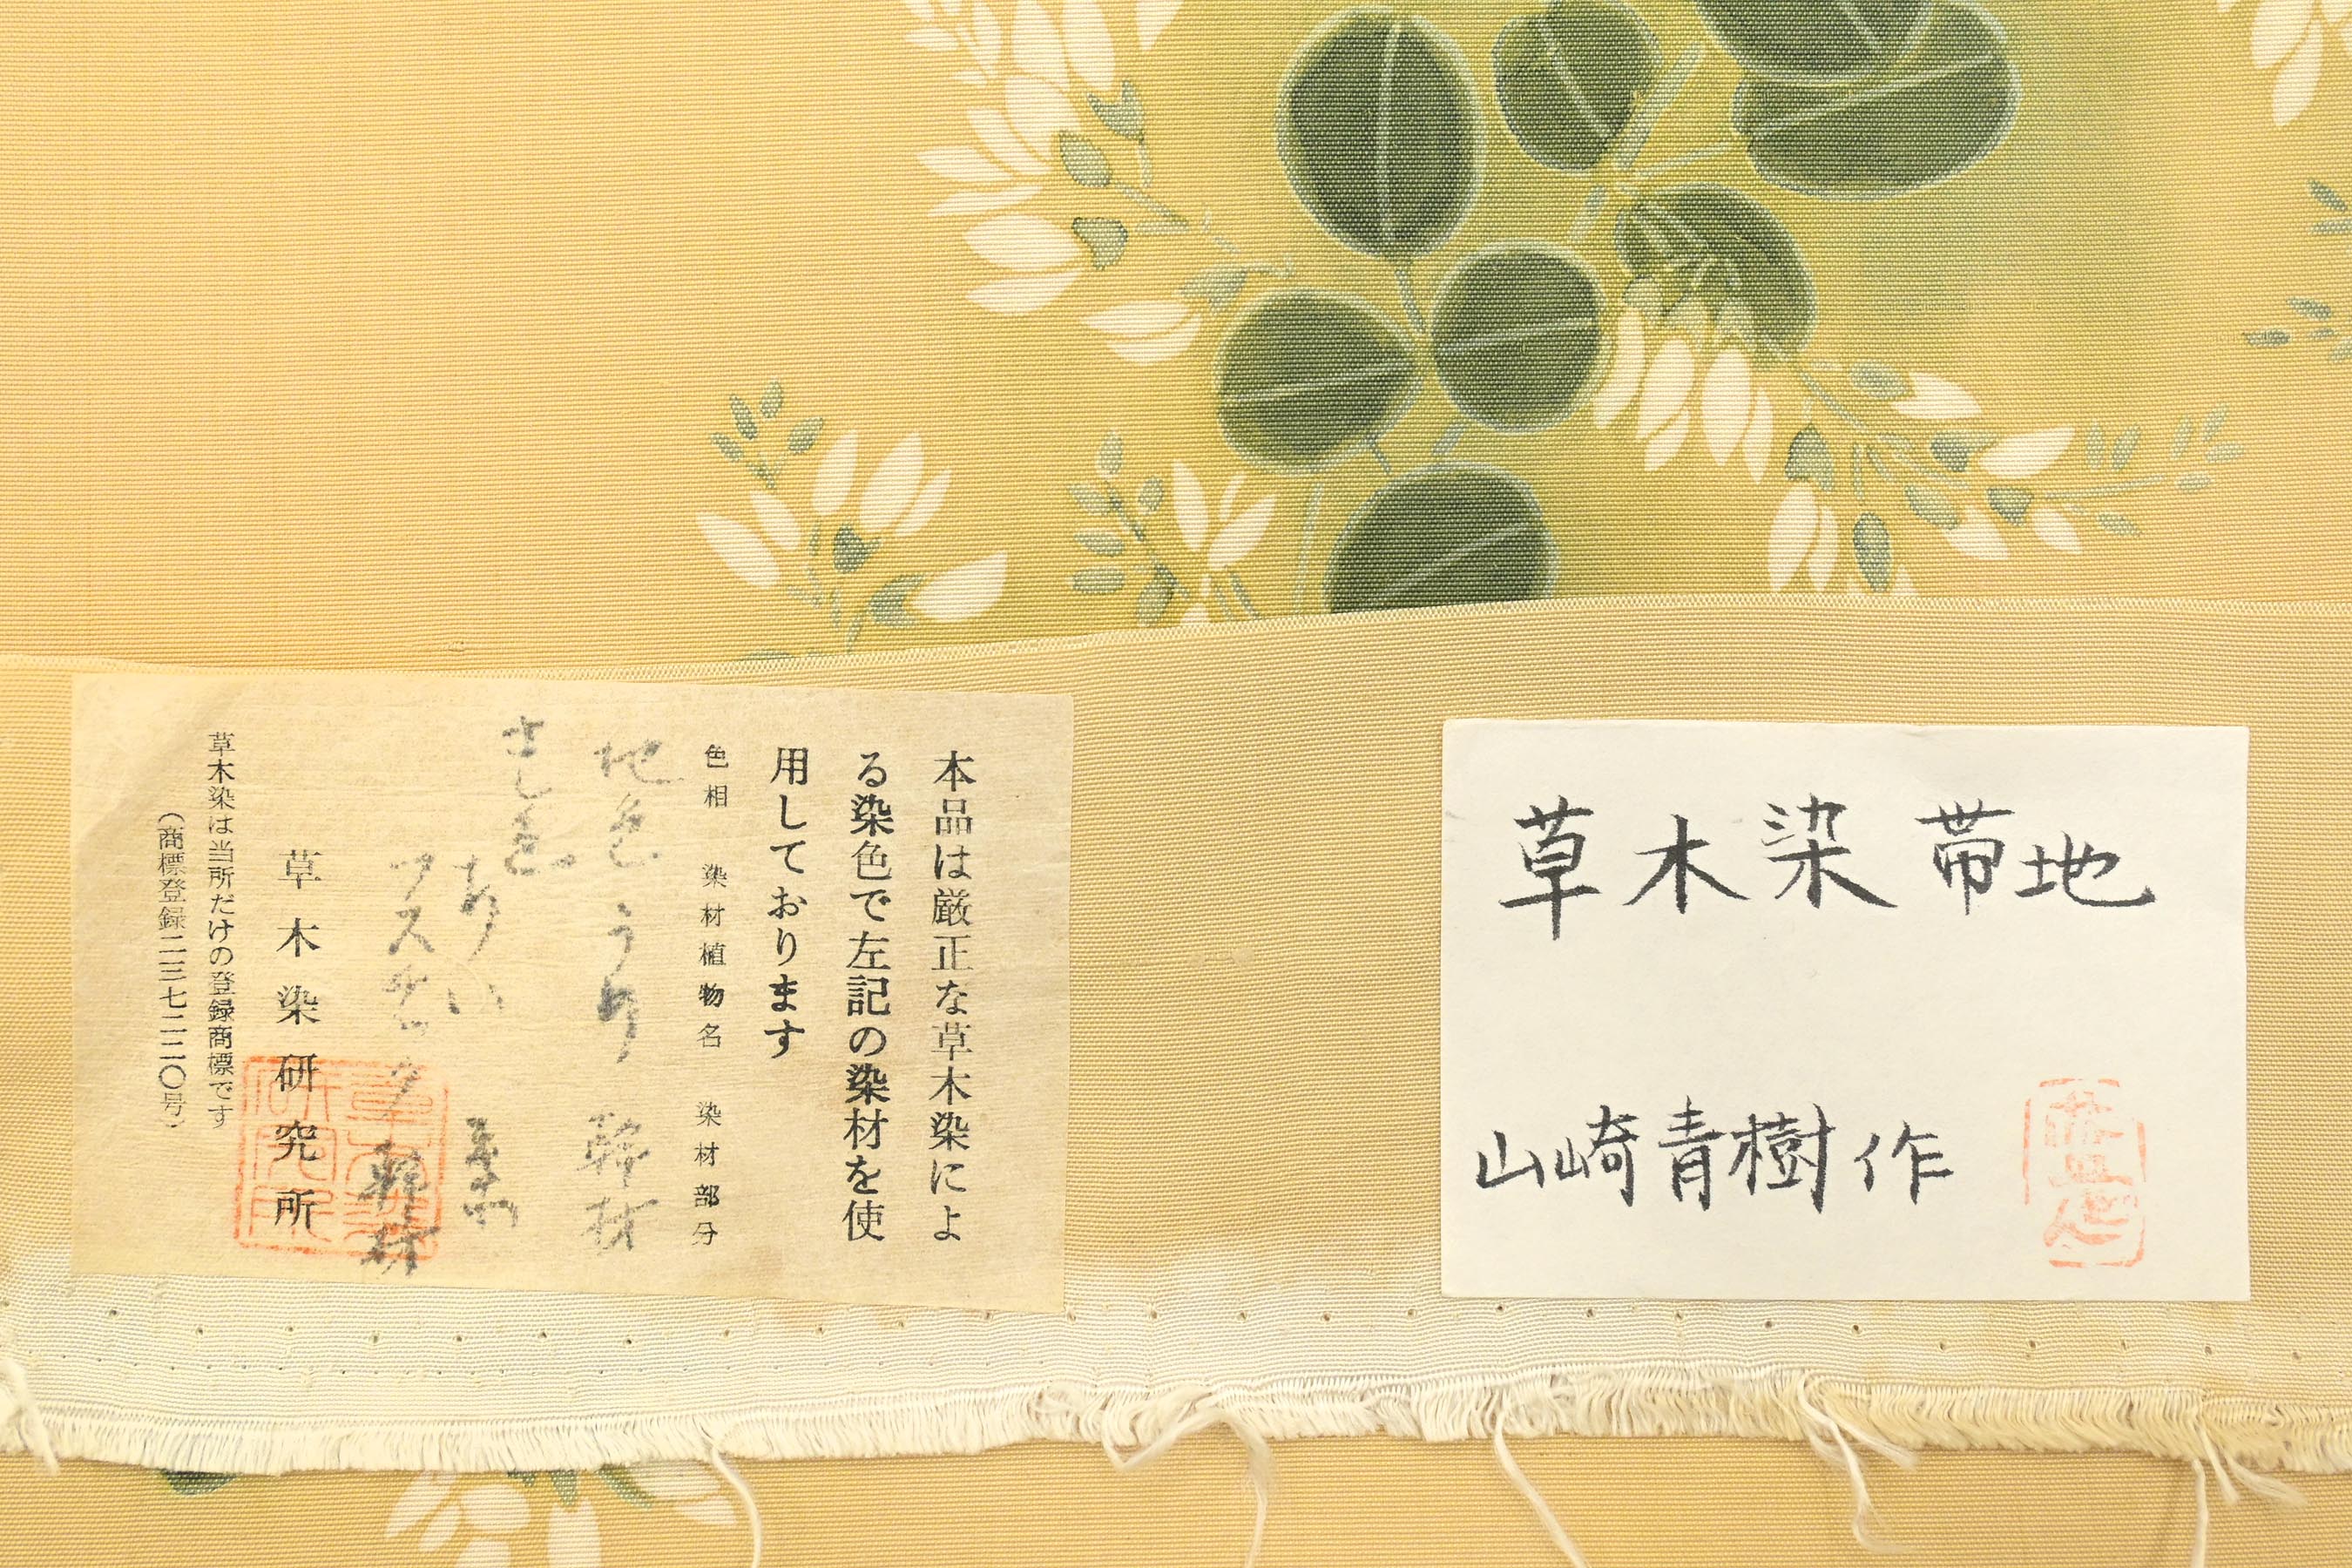 本品は厳正な草木染によ
る染色で左記の染材を使
用しております
色相 染材植物名 染材部分
地色 幹材
さし色
あい 葉
フスチック 幹材
草木染研究所
草木染は当所だけの登録商標です
(商標登録二三七二二〇号)
草木染帯地
山崎青樹作